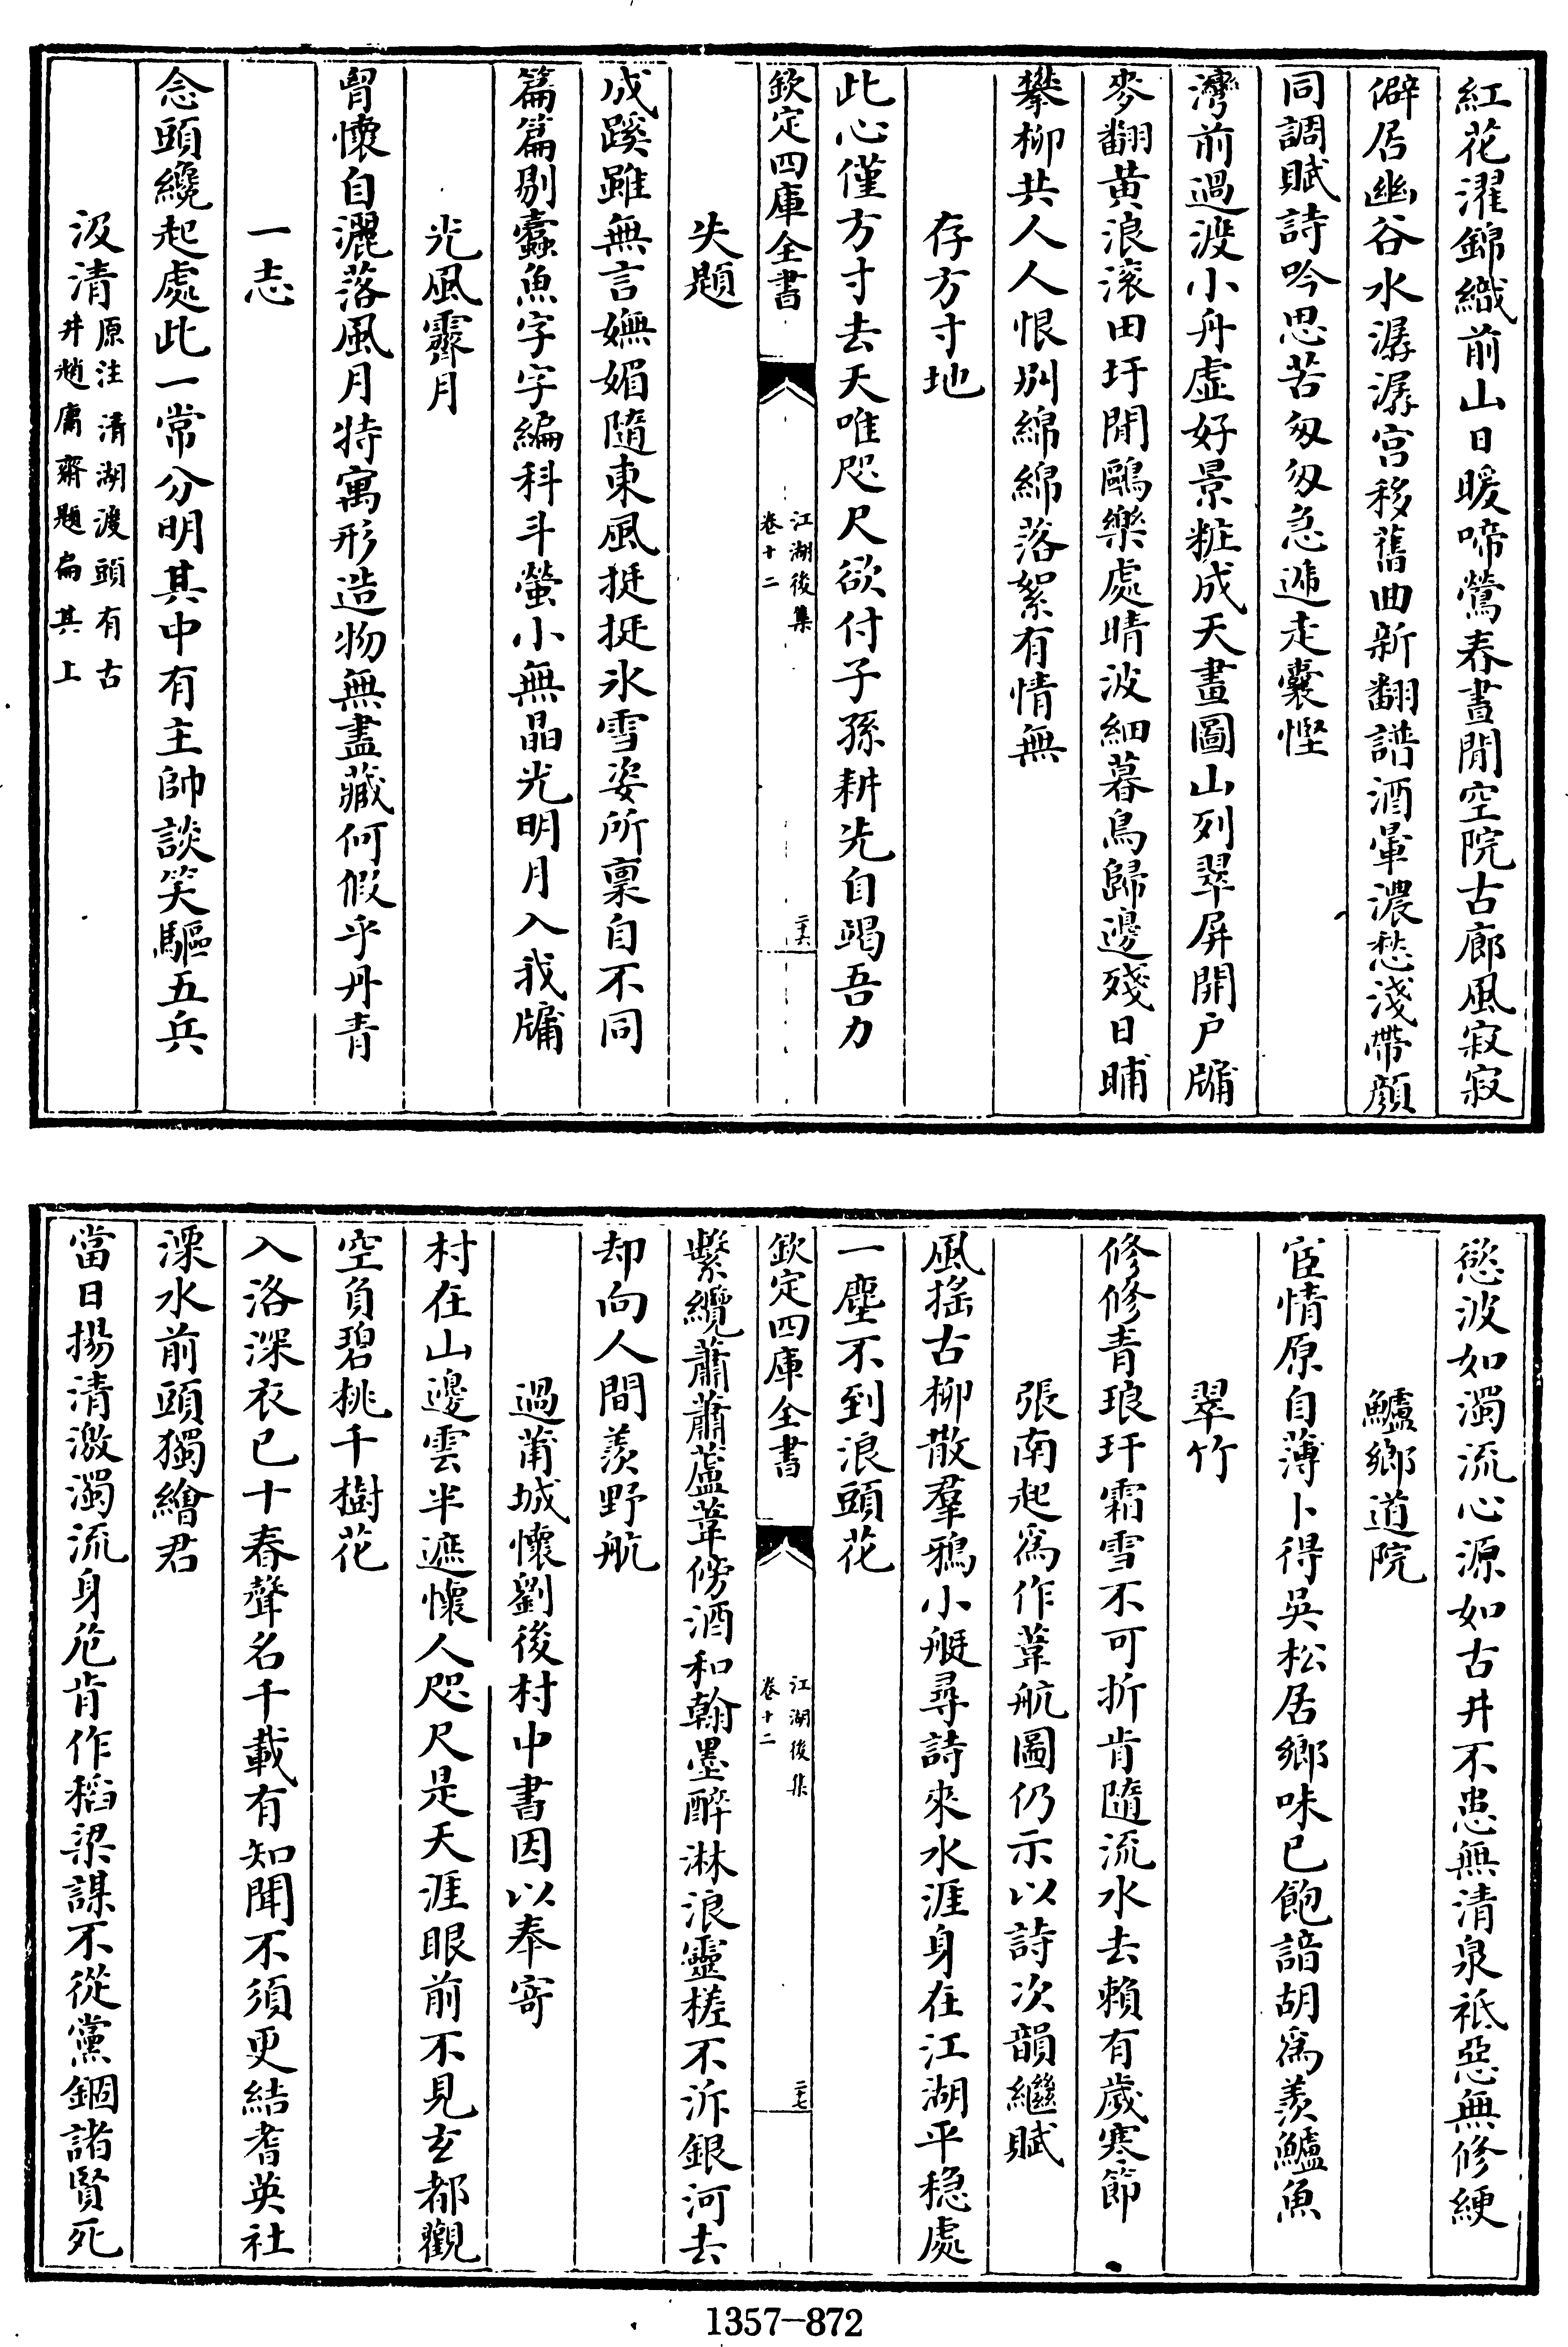 紅花濯錦織前山日暖啼鶯春晝閒空院古廊風寂寂
僻居幽谷水潺潺宫移舊曲新翻譜酒暈濃愁淺帶顔
同調賦詩吟思苦匆匆急遞走囊慳
灣前過渡小舟虛好景粧成天畫圖山列翠屏開户牖
麥翻黄浪滚田圩閒鷗樂處晴波細暮鳥歸邊殘日晡
攀柳共人人恨别綿綿落絮有情無
存方寸地
此心僅方寸去天唯咫尺欲付子孫耕先自竭吾力
欽定四庫全書
江湖後集
卷十二
二十六
失題
成蹊雖無言嫵媚隨東風挺挺氷雪姿所稟自不同
篇篇剔蠹魚字字編科斗螢小無晶光明月入我牖
光風霽月
胷懷自灑落風月特寓形造物無盡藏何假乎丹青
一志
念頭纔起處此一常分明其中有主帥談笑驅五兵
汲清原注清湖渡頭有古
井趙庸齋題扁其上
慾波如濁流心源如古井不患無清泉祗惡無修綆
鱸鄉道院
宦情原自薄卜得吳松居鄉味已飽諳胡爲羨鱸魚
翠竹
修修青琅玕霜雪不可折肯隨流水去賴有歲寒節
張南起爲作葦航圖仍示以詩次韻繼賦
風搖古柳散羣鴉小艇尋詩來水涯身在江湖平穏處
一塵不到浪頭花
欽定四庫全書
江湖後集
卷十二
二十七
繫纜蕭蕭蘆葦傍酒和翰墨醉淋浪靈槎不泝銀河去
却向人間羨野航
過莆城懷劉後村中書因以奉寄
村在山邊雲半遮懷人咫尺是天涯眼前不見玄都觀
空負碧桃千樹花
入洛深衣已十春聲名千載有知聞不須更結耆英社
溧水前頭獨繪君
當日揚清激濁流身危肯作稻粱謀不從黨錮諸賢死
1357—872